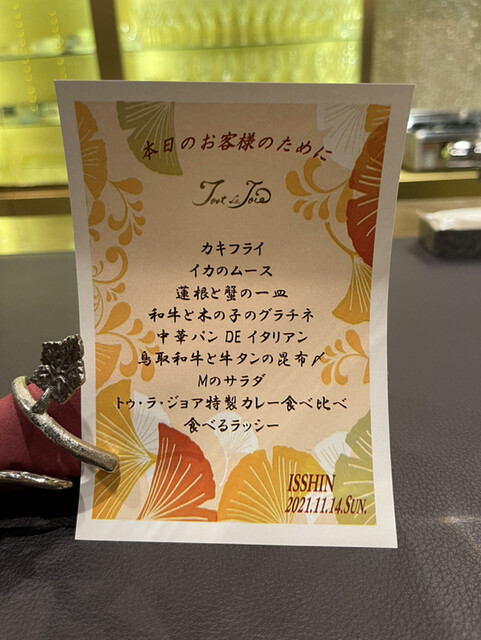 本日のお客様のために
Tout La Joie
カキフライ
イカのムース
蓮根と蟹の一皿
和牛と木の子のグラチネ
中華パン DE イタリアン
鳥取和牛と牛タンの昆布〆
Mのサラダ
トゥ・ラ・ジョア特製カレー食べ比べ
食べるラッシー
ISSHIN
2021.11.14.SUN.